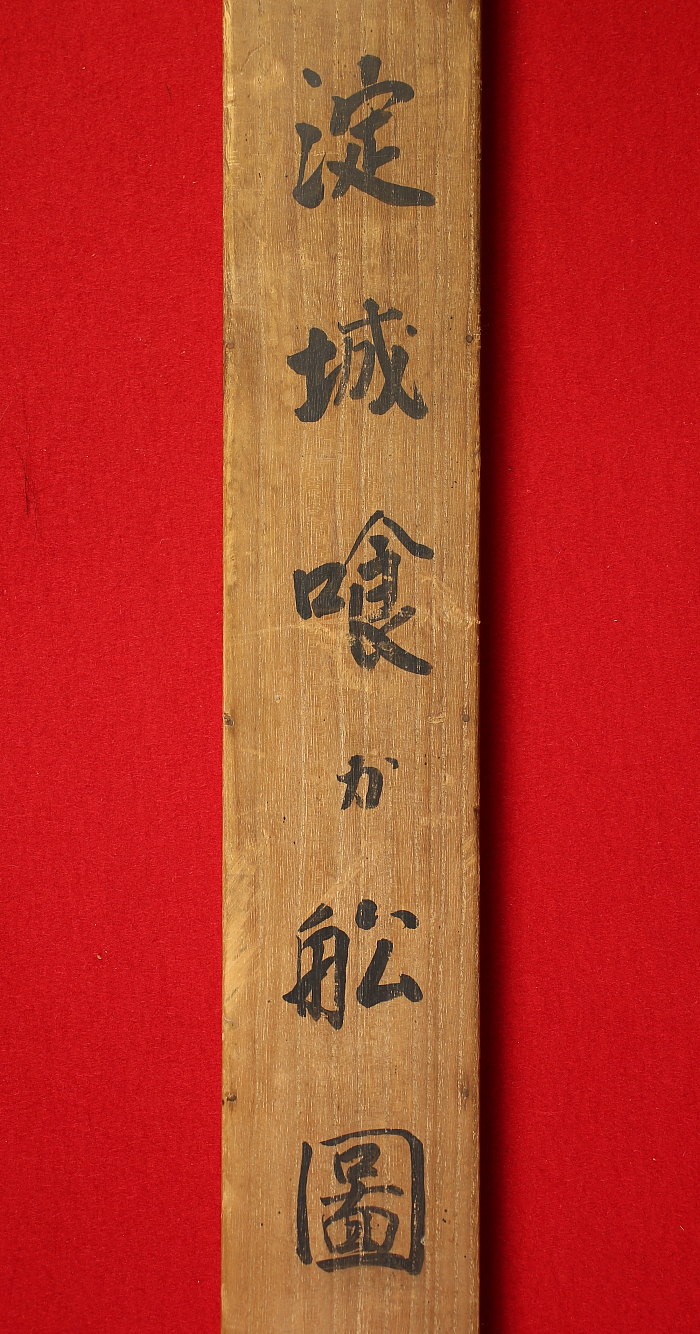 淀城喰か舩圖